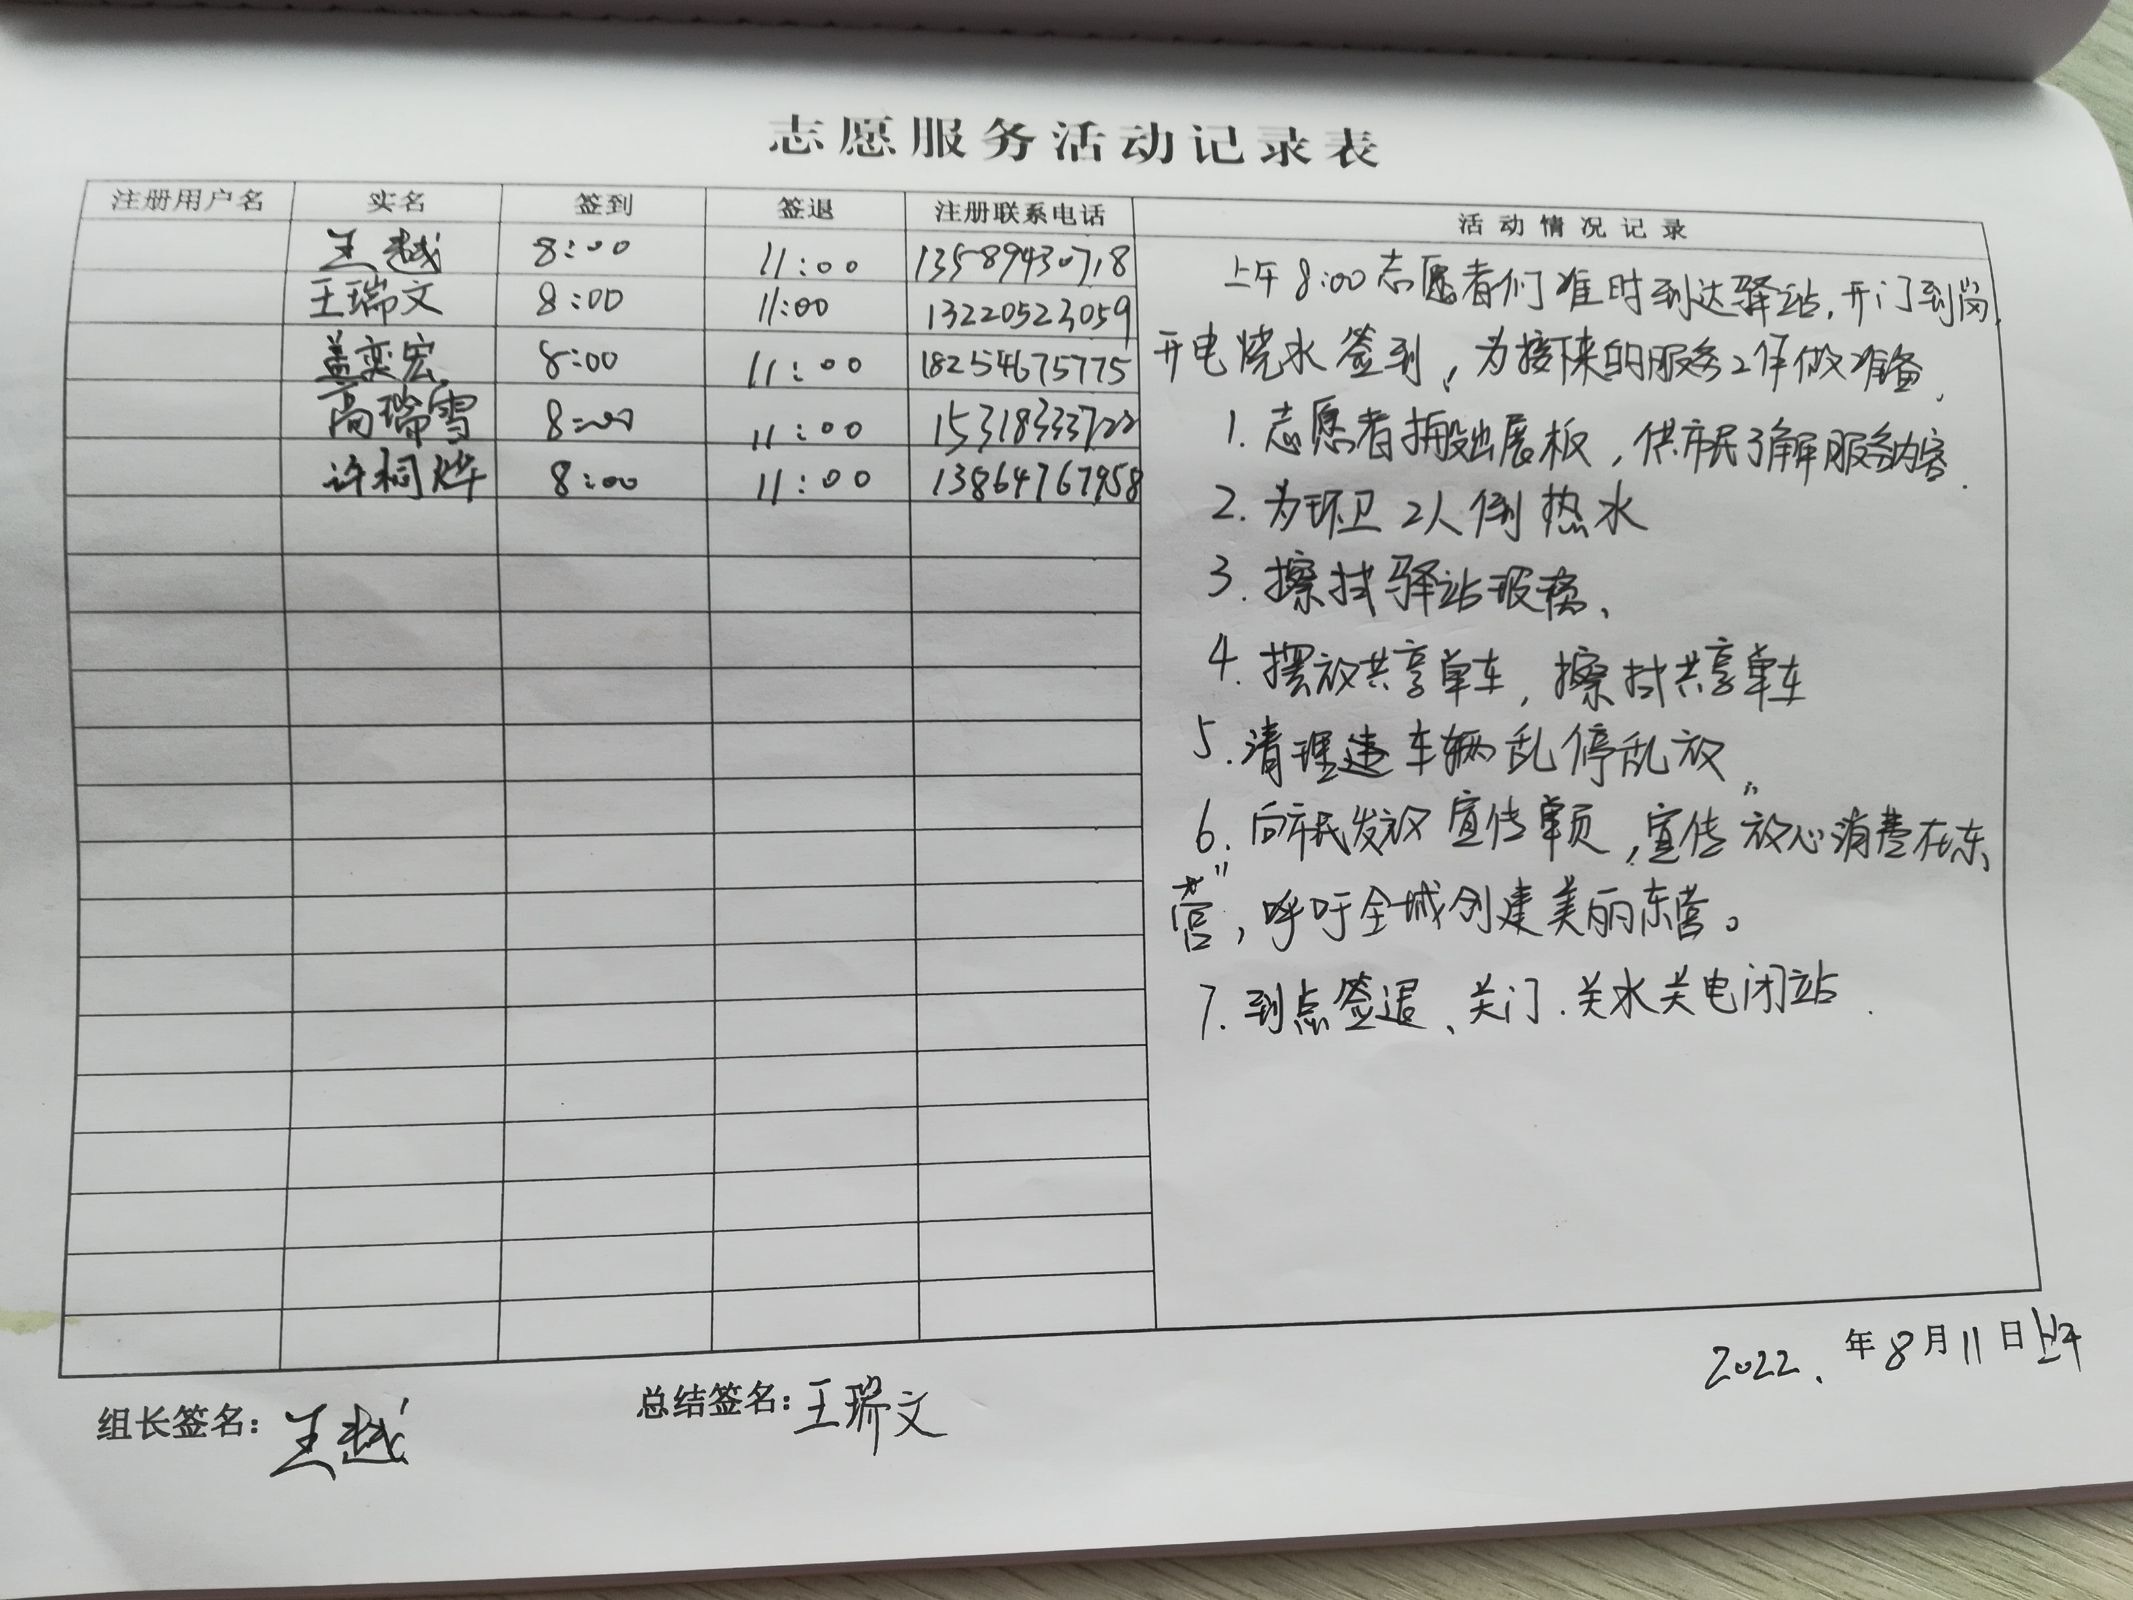 志愿服务活动记录表
注册用户名 实名 签到 签退 注册联系电话 活动情况记录
王越 8:00 11:00 13589430718
王瑞文 8:00 11:00 13220523059
盖奕宏 8:00 11:00 18254675775
高瑞雪 8:00 11:00 15318333722
许桐烨 8:00 11:00 13864767958
上午8:00志愿者们准时到达驿站,开门到岗,
开电烧水签到,为接下来的服务工作做准备.
1.志愿者搬出展板,供市民了解服务内容.
2.为环卫工人倒热水
3.擦拭驿站玻璃、
4.摆放共享单车,擦拭共享单车
5.清理违车辆乱停乱放
6.向市民发放宣传单页,宣传"放心消费在东
营",呼吁全城创建美丽东营。
7.到点签退、关门.关水关电闭站.
2022.年8月11日上午
组长签名:王越 总结签名:王瑞文